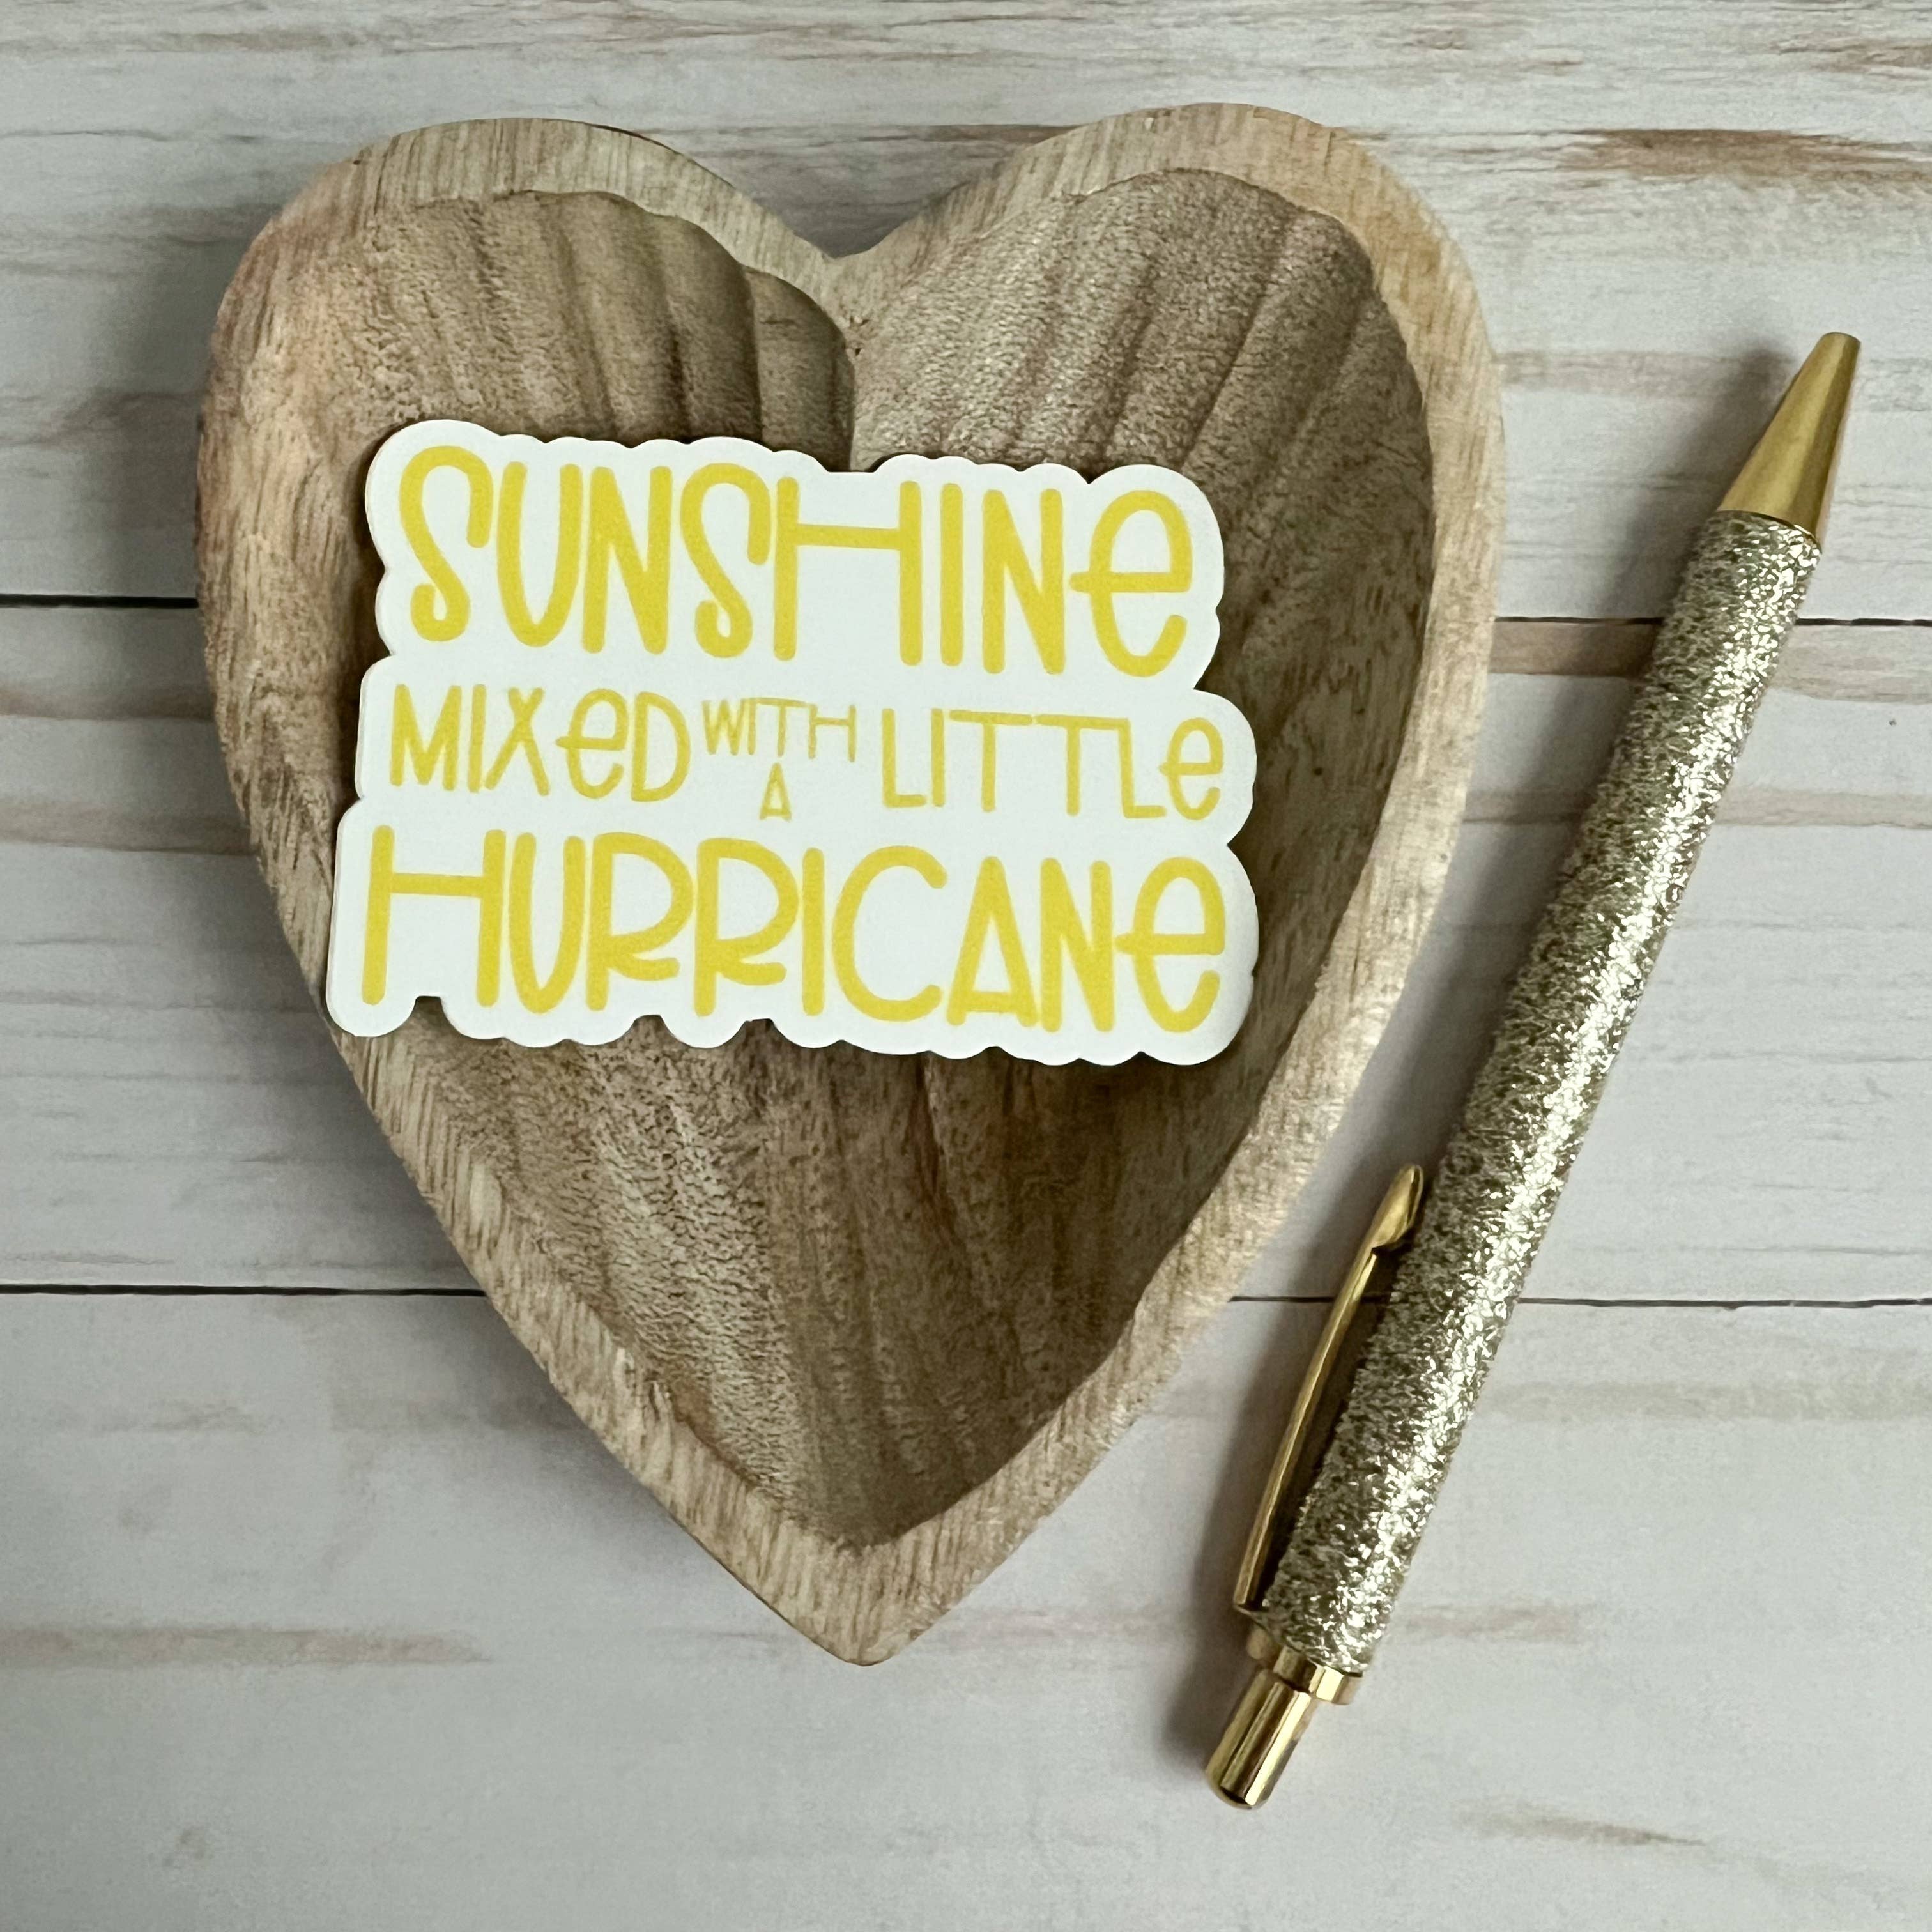 SUNSHINE
MIXeD WITH A LITTLe
HURRICANe